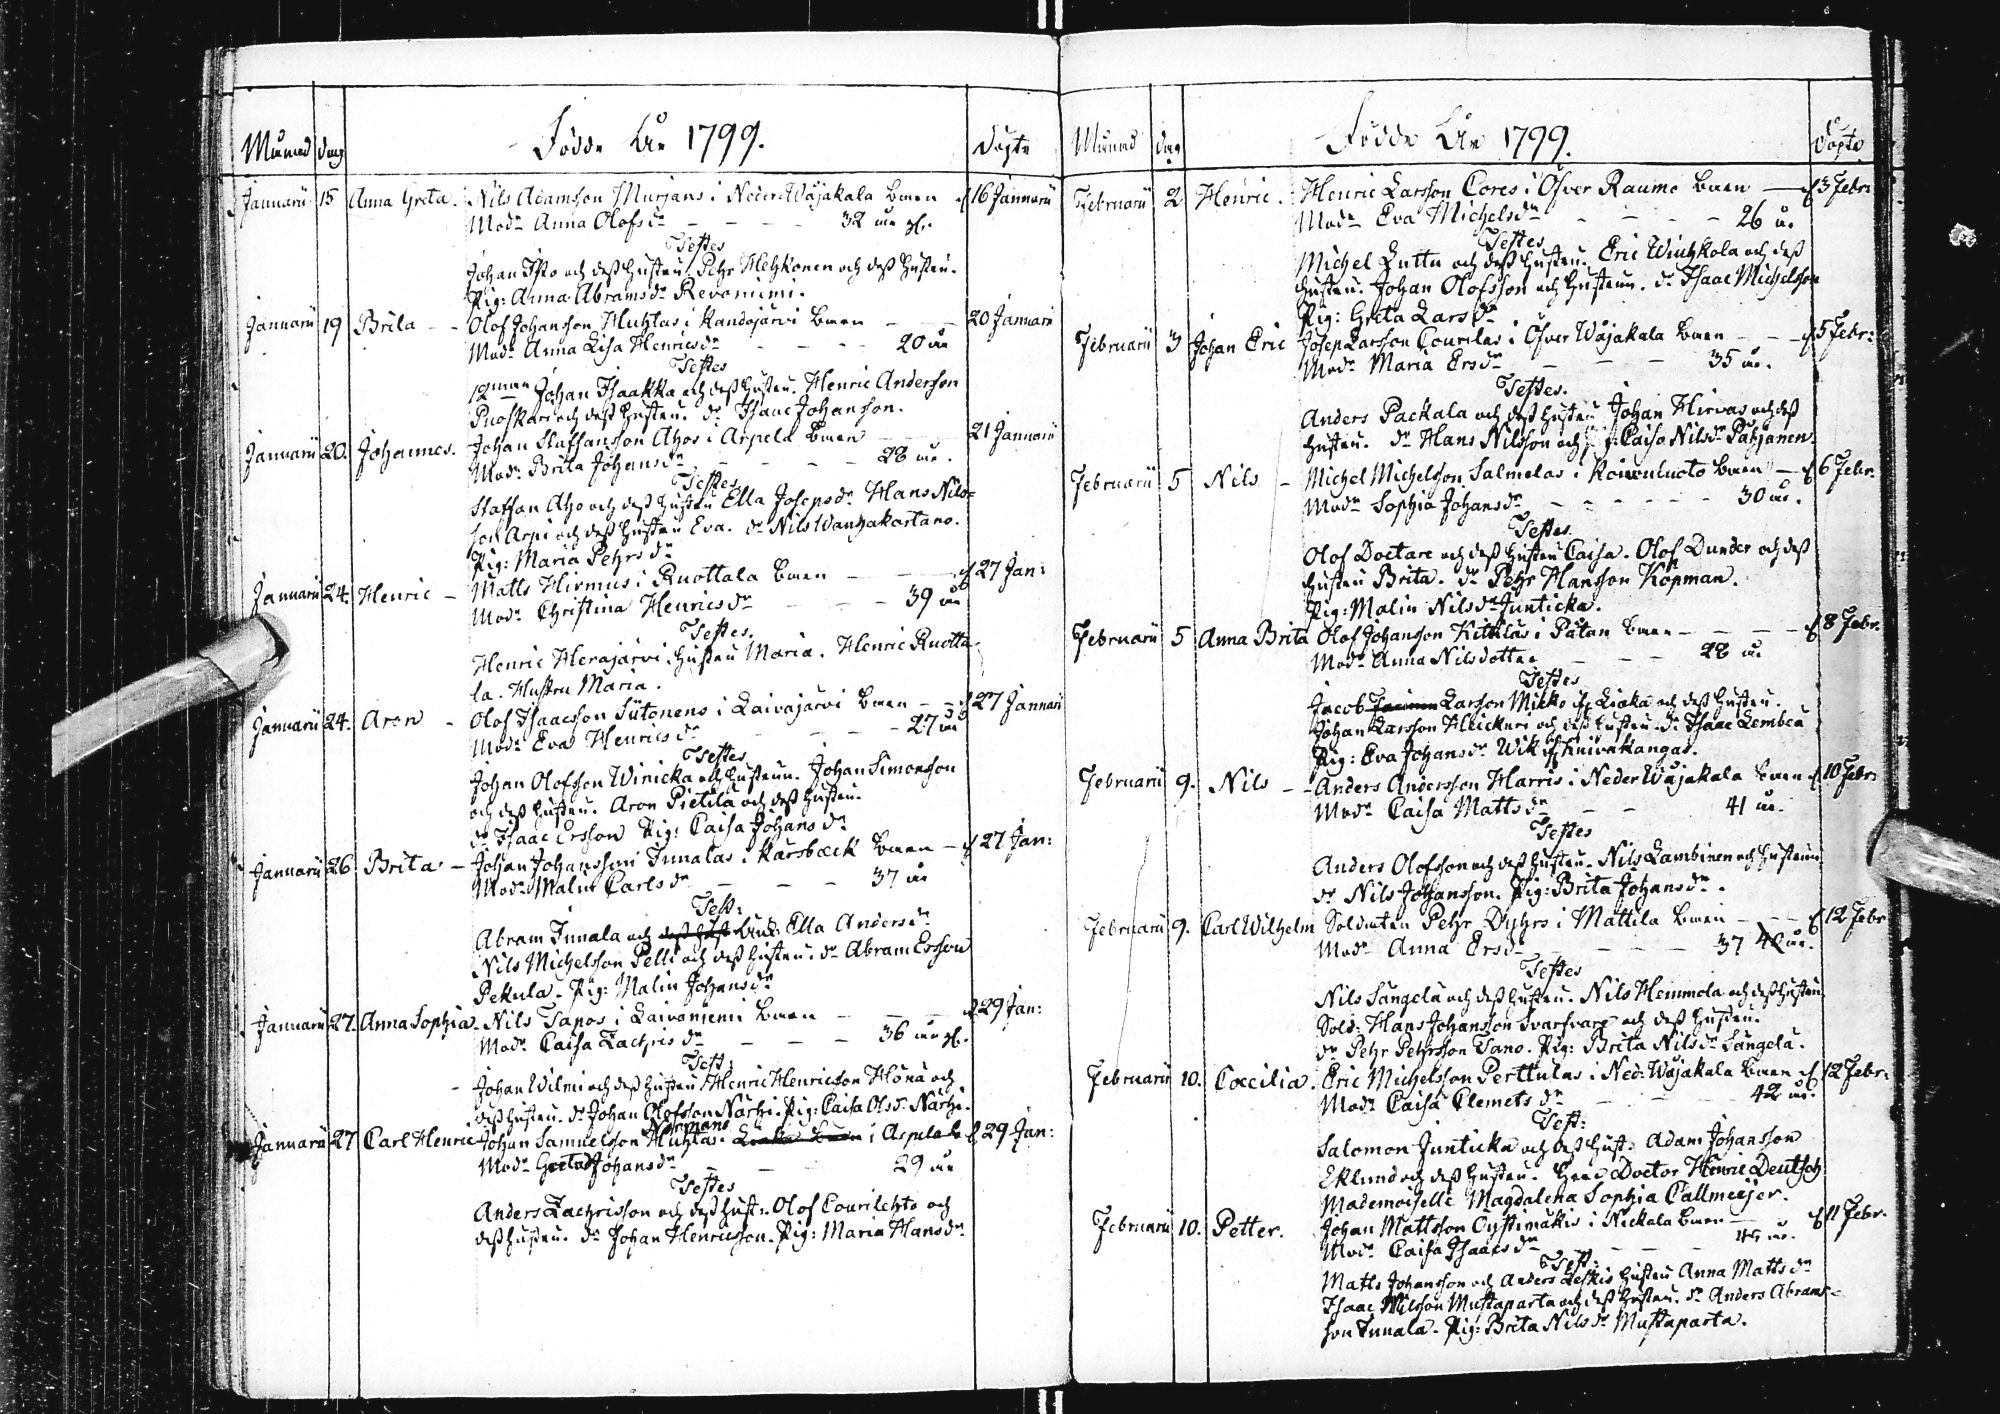 Månad dag Födde År 1799. Döpte
Januarii 15 Anna Greta. Nils Adamsson Murjans i Neder Wäjakala barn 16 Januarii
Modr Anna Olofs dr - - - 32 år gl.
Testes
Johan Isto och dess hustru. Pehr Hehkonen och dess hustru.
Pig: Anna Abrams dr Revoniemi.
Januarii 19 Brita - - Olof Johansson Huhtas i Kandojärvi barn - - 20 Januarii
Modr Anna Lisa Henrics dr - - - 20 år
Testes
12man Johan Isaakka och dess hustru. Henric Andersson
Puoskari och dess hustru. dr Isaac Johansson.
Januarii 20. Johannes. Johan Staffansson Ahos i Arpela barn - - 21 Januarii
Modr Brita Johans dr - - - 28 år.
Testes
Staffan Aho och dess hustru Ella Joseps dr Hans Nils=
son Arpi och dess hustru Eva. dr Nils Wanhakartano.
Pig: Maria Pehrs dr
Januarii 24. Henric - Matts Hirmus i Ruottala barn - - 27 Jan:
Modr Christina Henrics dr - - - 39 år
Testes.
Henric Herajärvi, hustru Maria. Henric Ruotta=
la. Hustru Maria.
Januarii 24. Aron - Olof Isaacsson Sutonens i Laivajärvi barn - - 27 Januarii
Modr Eva Henrics dr - - - 27 år
Testes
Johan Olofsson Winicka och hustrun. Johan Simonsson
och dess hustru. Aron Pietilä och dess hustru.
dr Isaac Ersson Pig: Caisa Johans dr
Januarii 26 Brita - Johan Johansson Innalas i Karsbäck barn - 27 Jan:
Modr Malin Carls dr - - - 37 år
Test:
Abram Innala och dess hust Ella Anders dr
Nils Michelsson Pelli och dess hustru. dr Abram Ersson
Pekula. Pig: Malin Johans dr
Januarii 27. Anna Sophia. Nils Tapos i Laivaniemi barn - - 29 Jan:
Modr Caisa Zachris dr - - - 36 år gl.
Test:
Johan Wilmi och dess hustru. Henric Henricsson Höna och
dess hustru. dr Johan Olofsson Närhi. Pig: Caisa Ols dr Närhi.
Januarii 27 Carl Henric Johan Samuelsson Huhtas. Normans i Arpela 29 Jan:
Modr Greta Johans dr - - 29 år
Testes
Anders Zachrisson och dess hust:. Olof Courilehto och
dess hustru. dr Johan Henricsson. Pig: Maria Hans dr
Månad dag Födde År 1799. Döpte
Februarii 2 Henric. Henric Larsson Cores i Öfver Raumo barn - 3 Febr:
Modr Eva Michels dr - - - 26 år
Testes
Michel Luttu och dess hustru. Eric Wiuhkola och dess
hustru. Johan Olofsson och hustrun. dr Isaac Michelsson
Pig: Greta Lars dr
Februarii 3 Johan Eric Josep Larsson Courilas i Öfver Wäjakala barn - - 5 Febr:
Modr Maria Ers dr - - - 35 år.
Testes.
Anders Packala och dess hustru Johan Hirvas och dess
hustru. dr Hans Nilsson och Pig: Caisa Nils dr Pähjänen
Februarii 5 Nils - Michel Michelsson Salmelas i Koivuluoto barn - 6 Febr.
Modr Sophia Johans dr - - - 30 år.
Testes.
Olof Doctare och dess hustru Caisa. Olof Dunder och dess
hustru Brita. dr Pehr Hansson Köpman.
Pig: Malin Nils dr Junticka.
Februarii 5 Anna Brita Olof Johansson Kittilas i Pätan barn - - - 8 Febr.
Modr Anna Nilsdotter - - - 28 år
Testes
Jacob Larsson Mikko Liaka och dess hustru.
Johan Larsson Heickuri och dess hustru. dr Isaac Lembea
Pig: Eva Johans dr Wik Knivakangas.
Februarii 9. Nils - - Anders Andersson Harris i Neder Wäjakala barn 10 Febr:
Modr Caisa Matts dr - - 41 år.
Testes
Anders Olofsson och dess hustru. Nils Lambinen och hustrun
dr Nils Johansson. Pig: Brita Johans dr.
Februarii 9. Carl Wilhelm Soldaten Pehr Dyhrs i Mattila barn - - - 12 Febr
Modr Anna Ers dr - - - 37 40 år.
Testes
Nils Sangela och dess hustru. Nils Hemmola och dess hustru
Sold: Hans Johansson Svarfvare och dess hustru.
dr Pehr Pehrsson Tano. Pig: Brita Nils dr Sangela.
Februarii 10. Cæcilia. Eric Michelsson Perttulas i Ned: Wäjakala barn 12 Febr:
Modr Caisa Clemets dr - - - 42 år.
Test:
Salomon Junticka och dess hust: Adam Johansson
Eklund och dess hustru. Herr Doctor Henric Deutsch
Mademoiselle Magdalena Sophia Callmeijer.
Februarii 10. Petter. Johan Mattsson Oystimäkis i Nickala barn - 11 Febr.
Modr Caisa Isaacs dr - - - år.
Test:
Matts Johansson och Anders Leskis hustru Anna Matts dr
Isaac Nilsson Mustaparta och dess hustru. dr Anders Abrams=
son Innala. Pig: Brita Nils dr Mustaparta.